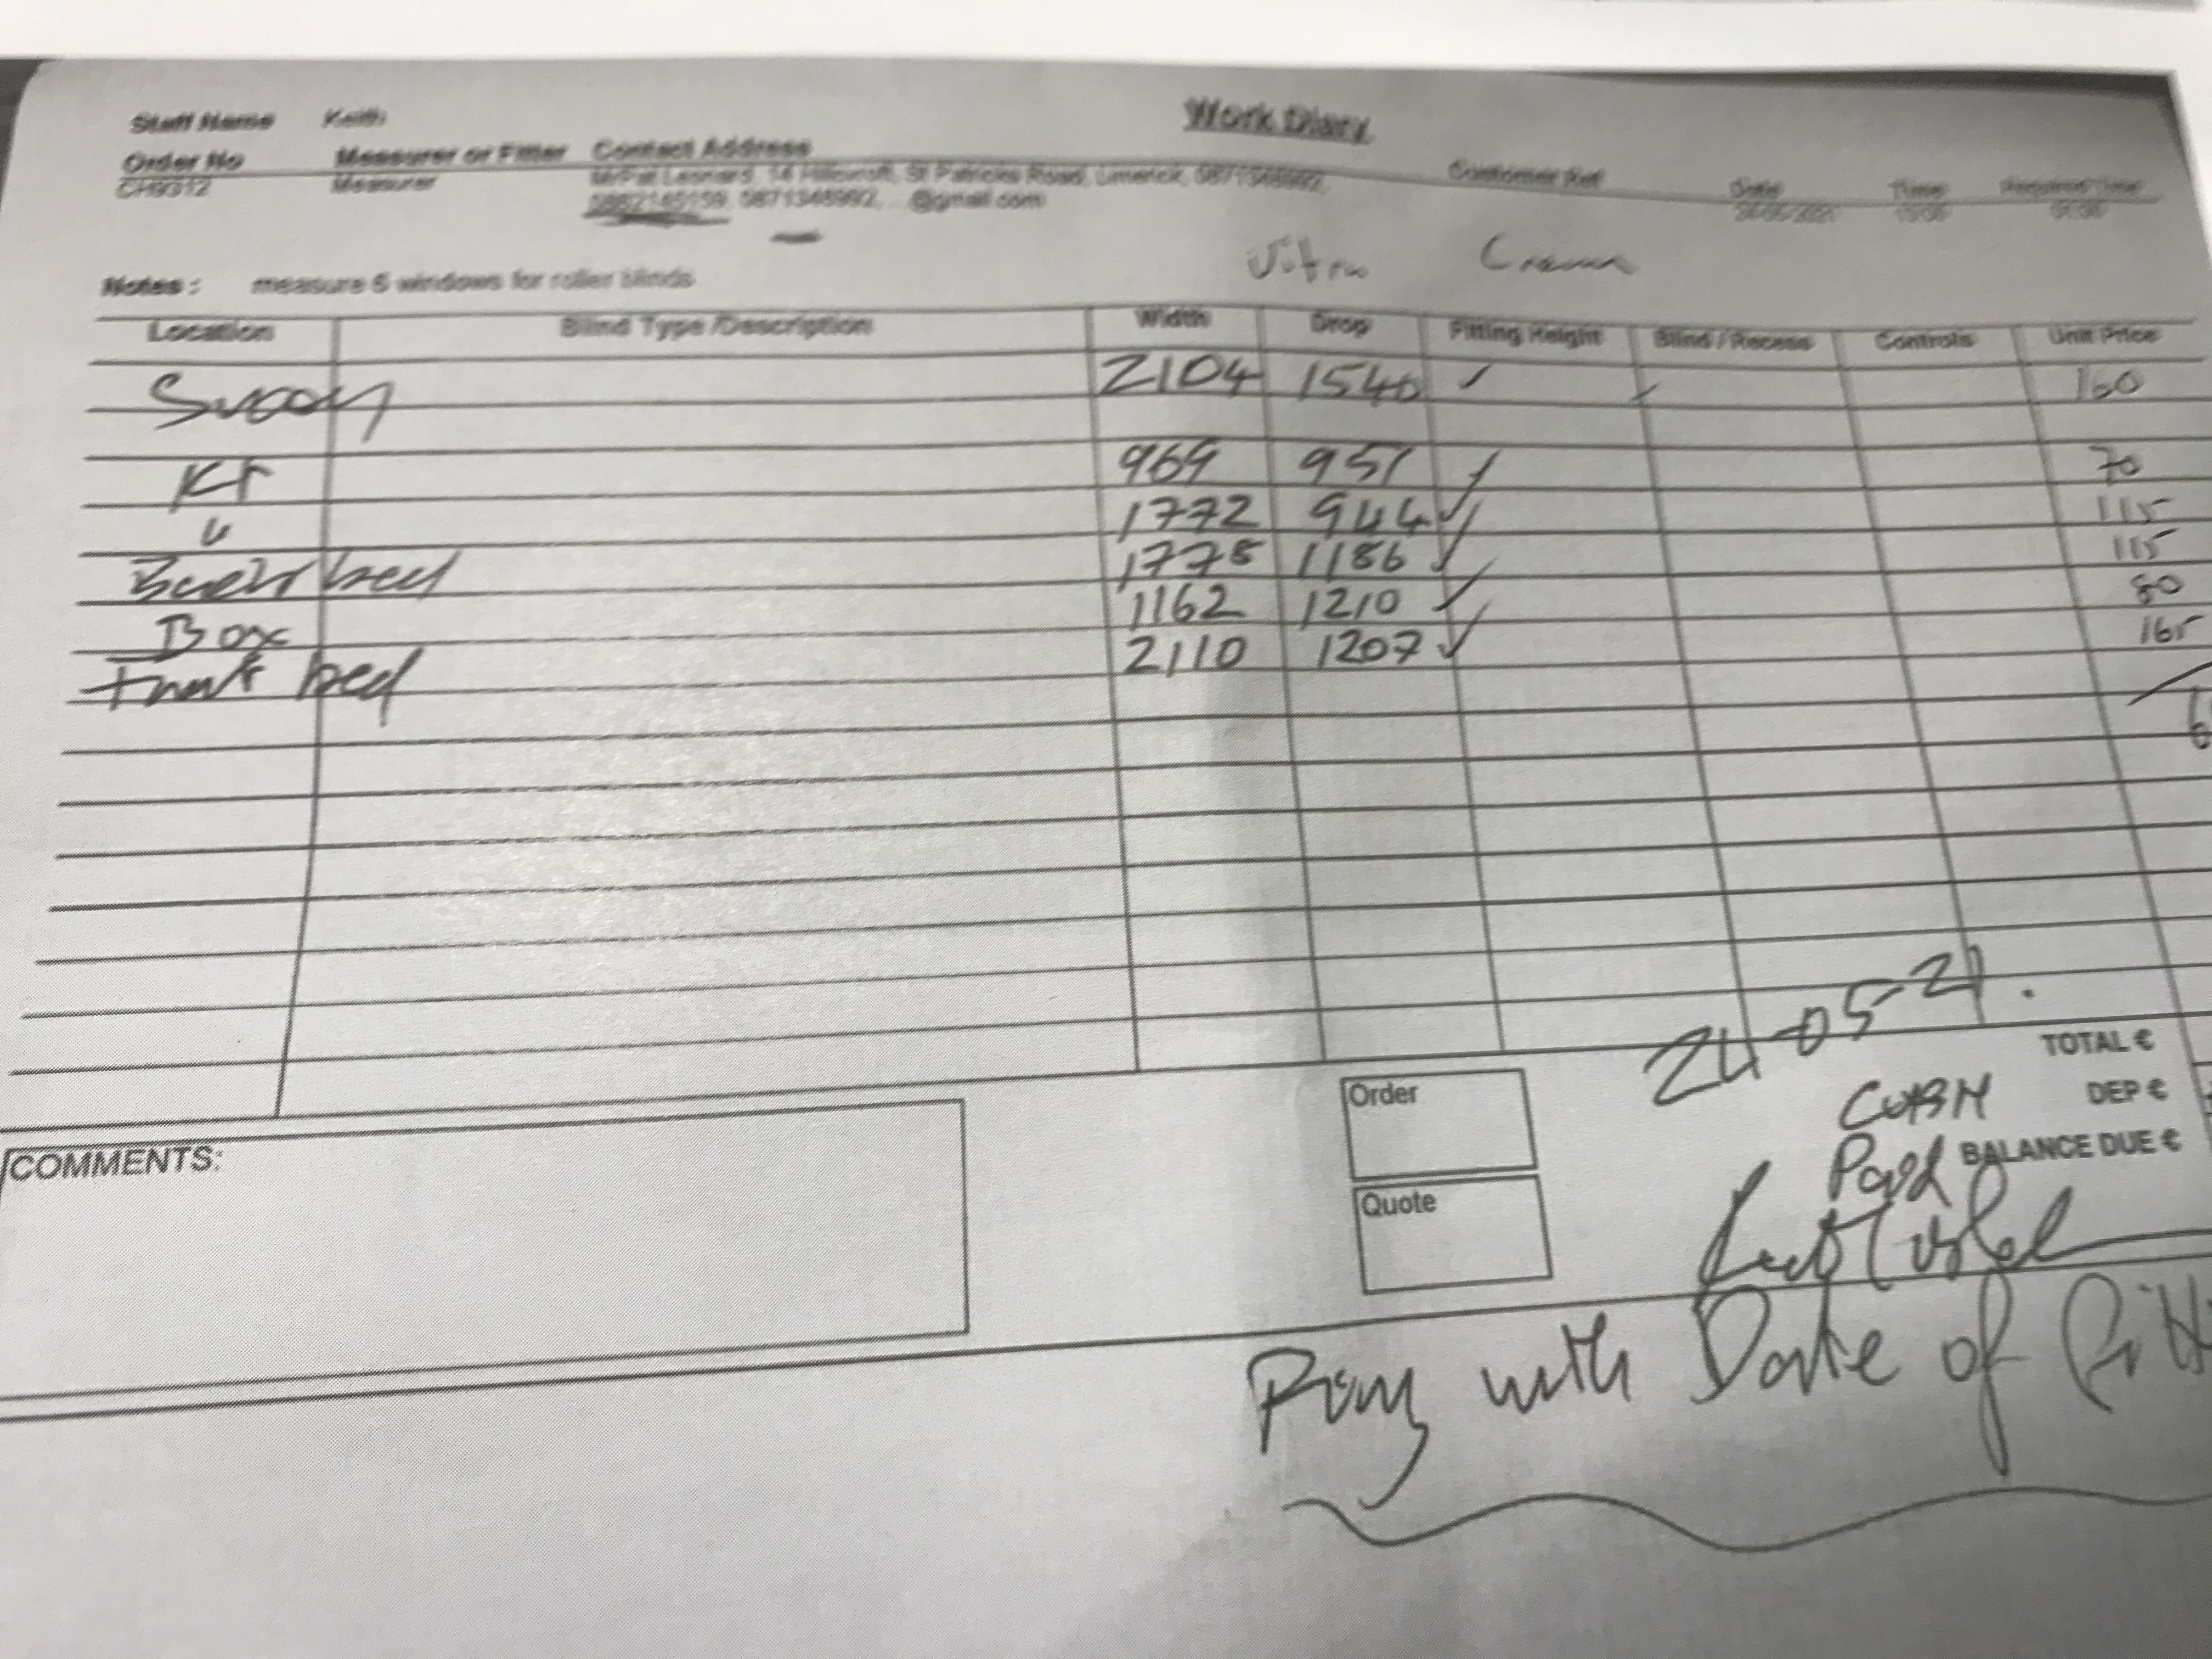 Work Diary
Staff Name Keith
Order No Measurer or Fitter Contact Address Customer Ref Date Time Required Time
CH9312 Measurer Mr Pat Leonard, 14 Hillcroft, St Patricks Road, Limerick,
@gmail.com
Vitra Crema
Notes : measure 6 windows for roller blinds
Location Blind Type /Description Width Drop Fitting Height Blind / Recess Controls Unit Price
2104 1540 ✓ ✓ 160
Kt 969 951 ✓ 70
" 1772 944 ✓ 115
Back bed 1778 1186 ✓ 115
Box 1162 1210 ✓ 80
Front bed 2110 1207 ✓ 165
24-05-21.
TOTAL €
Order DEP €
COMMENTS: Paid BALANCE DUE €
Quote
Ring with Date of